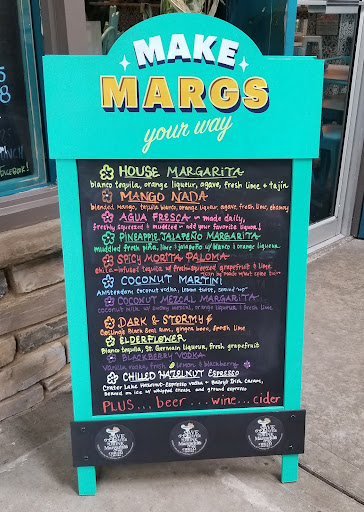 MAKE
MARGS
your way
HOUSE MARGARITA
blanco tequila, orange liqueur, agave, fresh lime + tajín
MANGO NADA
blended mango, tequila blanco, orange liqueur, agave, fresh lime, chamoy
AGUA FRESCA - made daily,
freshly squeezed & muddled - add your favorite liqueur!
PINEAPPLE JALAPEÑO MARGARITA
muddled fresh piña, lime & jalapeño w/ blanco & orange liqueur
SPICY MORITA PALOMA
chile-infused tequila w/ fresh-squeezed grapefruit & lime
COCONUT MARTINI
Amsterdam coconut vodka, lemon twist,
COCONUT MEZCAL MARGARITA
coconut milk w/ smoky mezcal, orange liqueur & fresh lime
DARK & STORMY
Gosling's Black Seal rum, ginger beer, fresh lime
ELDERFLOWER
Blanco tequila, St. Germain liqueur, fresh grapefruit
BLACKBERRY VODKA
Vanilla vodka, fresh lemon & blackberry
CHILLED HAZELNUT ESPRESSO
Crater Lake Hazelnut-Espresso vodka + Baileys Irish Cream,
served on ice w/ whipped cream and ground espresso
PLUS... beer ... wine... cider